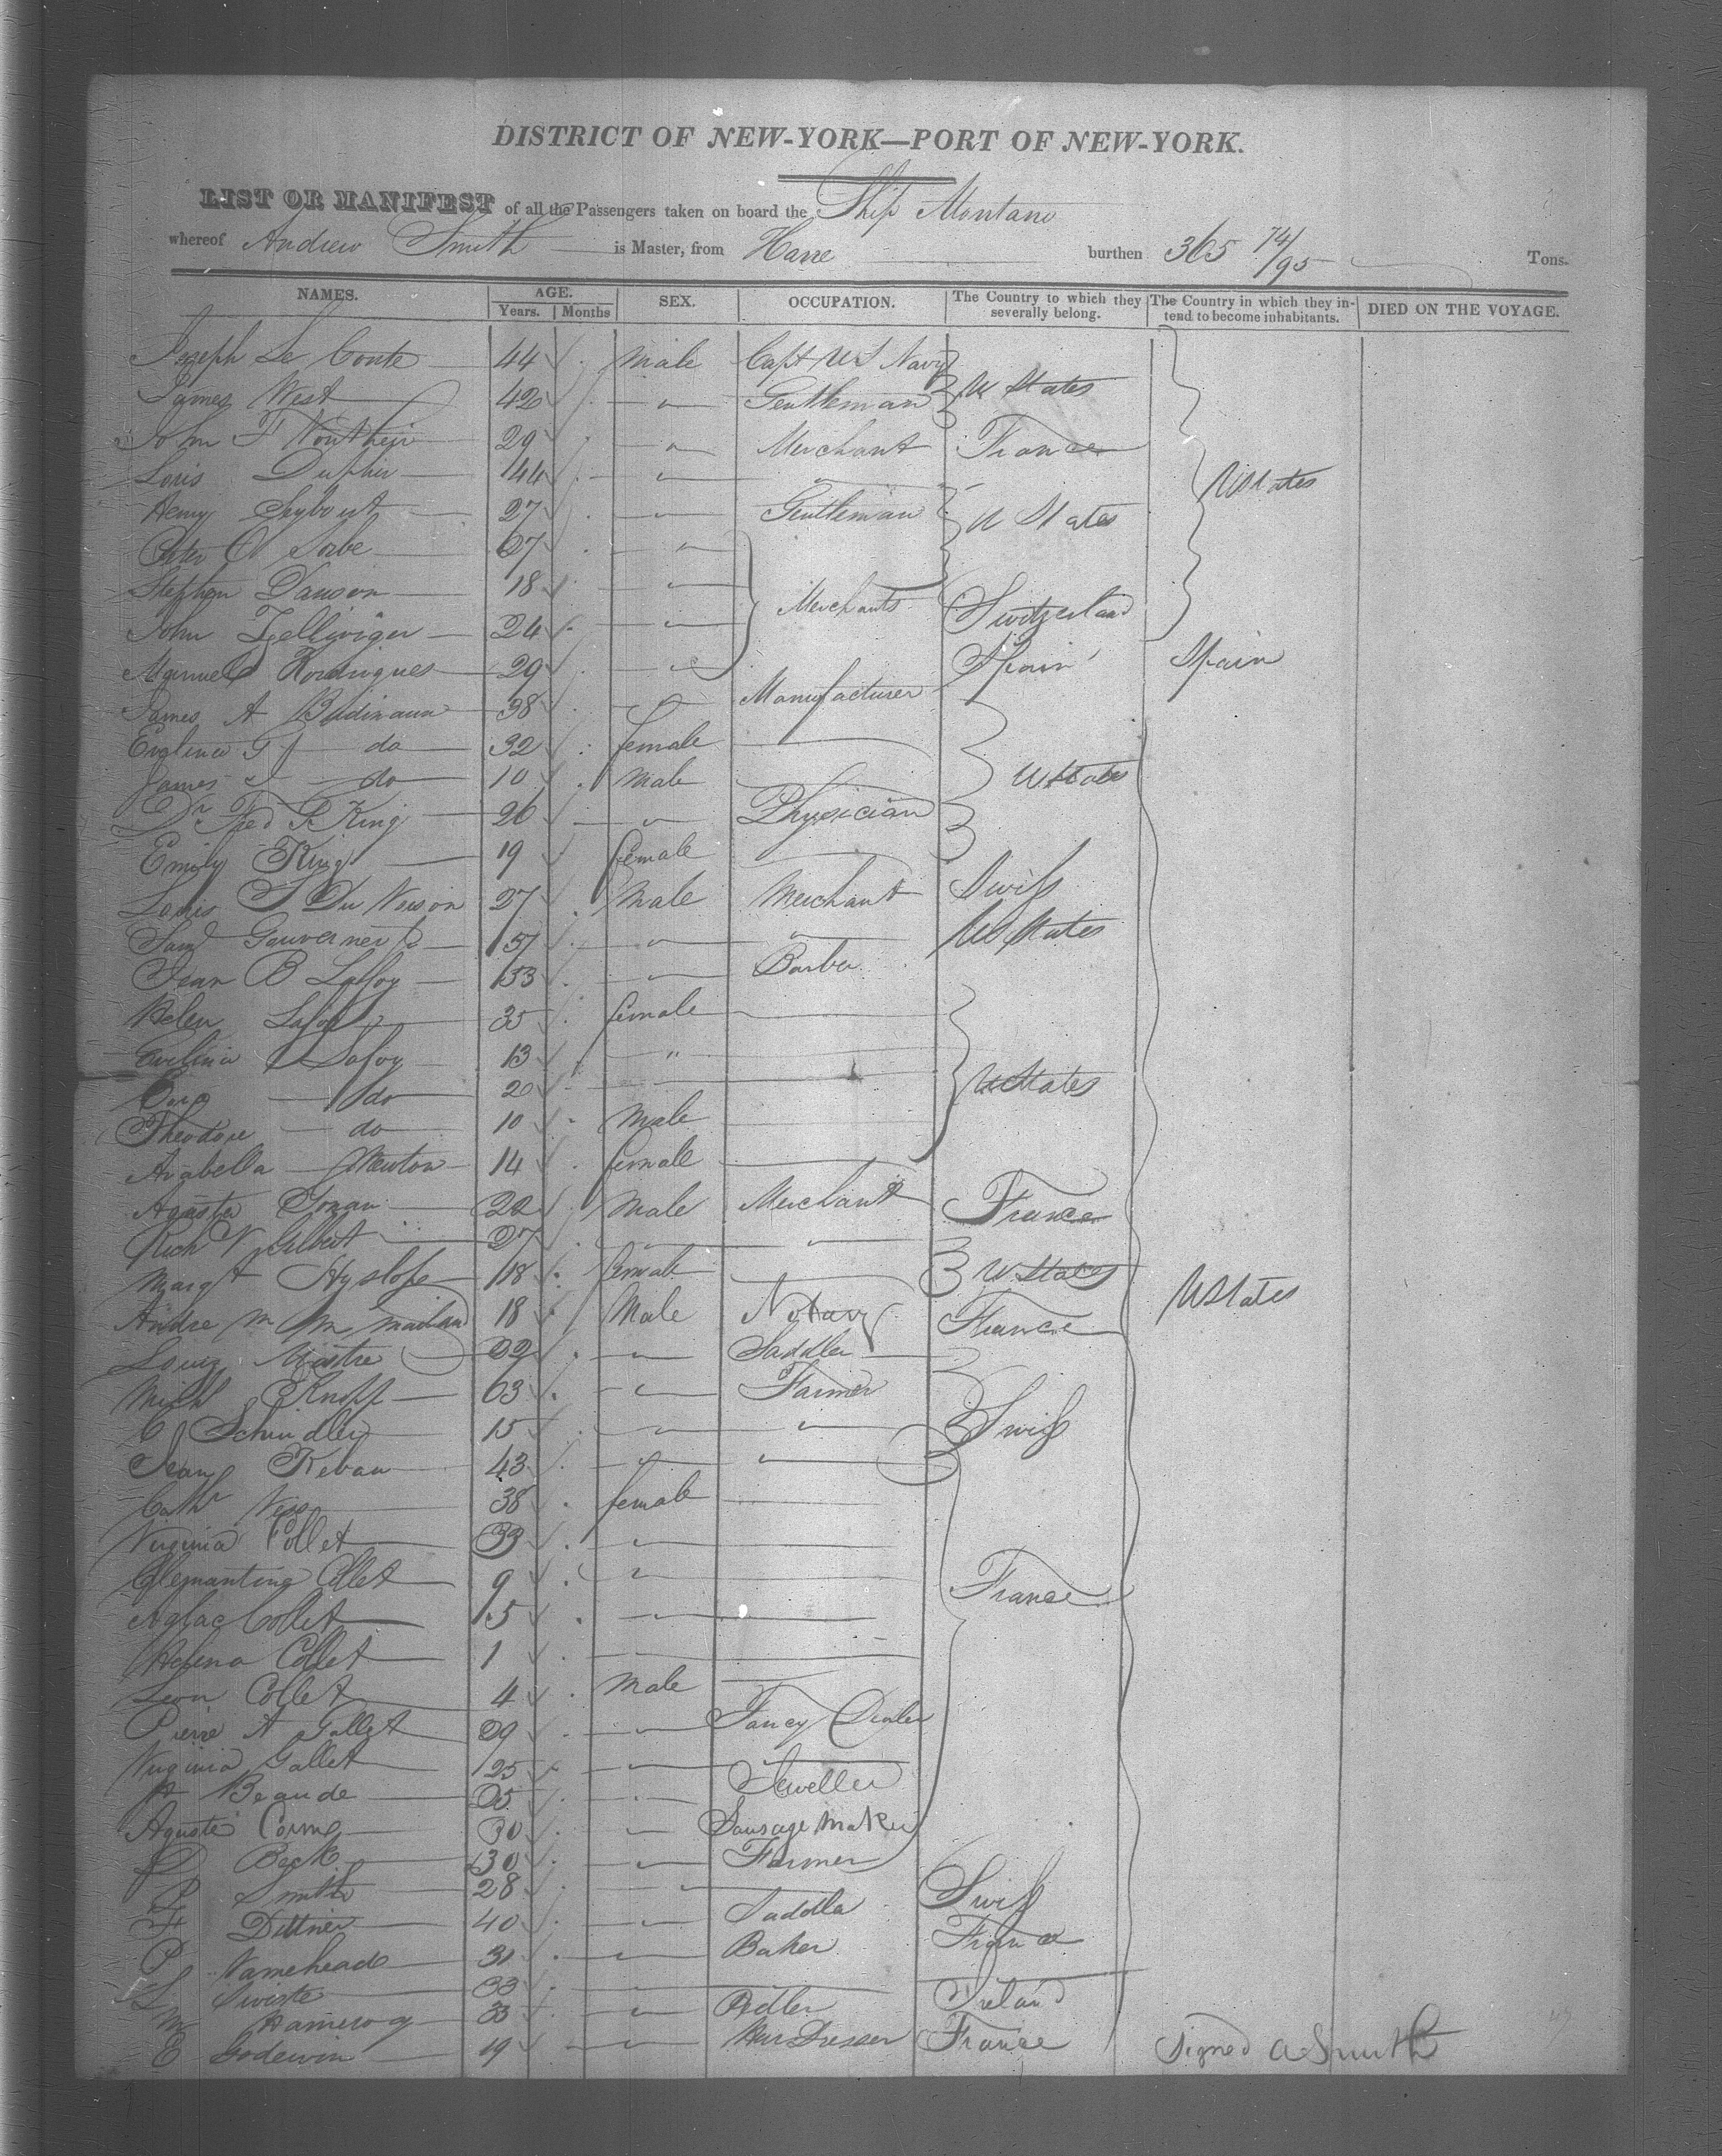 DISTRICT OF NEW-YORK—PORT OF NEW-YORK.
LIST OR MANIFEST of all the Passengers taken on board the Ship Montano
whereof Andrew Smith is Master, from Havre burthen 365 74/95 Tons.
NAMES. AGE. Years. Months SEX. OCCUPATION. The Country to which they severally belong. The Country in which they intend to become inhabitants. DIED ON THE VOYAGE.
Joseph Le Conte 44 male Capt US Navy
James West 42 " Gentleman U States
John F 29 " Merchant France
Louis 44 "
Henry Seybert 27 " Gentleman U States U States
Peter 27 "
Stephen 18 " Merchants
John Zellwiger 24 " Switzerland
Manuel Rodrigues 29 " Spain Spain
James A 38 " Manufacturer
do 32 female
James do 10 male U States
Dr Fred King 26 " Physician
Emily King 19 female
Louis Du 27 male Merchant Swiss
Saml Gouverneur 57 " " U States
Jean B Lafoy 53 " Barber
Helen Lafoy 35 female
Evelina Lafoy 13 "
do 20 U States
Theodore do 10 male
Arabella Newton 14 female
Aguste 22 male Merchant France
Rich V Gilbert 27 " "
Margt Hyslope 18 female U States U States
Andre M 18 Male Notary France
Louiz Mistre 22 " Saddler
Mich Knipp 63 " Farmer
C Schindler 15 " " Swiss
Jean 43 " "
Cathr 38 female
Virginia Collet 33 "
Clemantine Collet 9 " France
Aglae Collet 5 "
Helena Collet 1
Leon Collet 4 male
Pierre A Gallet 29 " Fancy Dealer
Virginia Gallet 25 "
A Beaude 25 " Jeweller
Aguste 30 " Sausage Maker
Beck 30 " Farmer
P Smith 28 " Swiss
F Dittner 40 " Saddler
P 31 " Baker France
L 33
M 33 " Pedler Ireland
E Godewin 19 " Hair Dresser France Signed A Smith